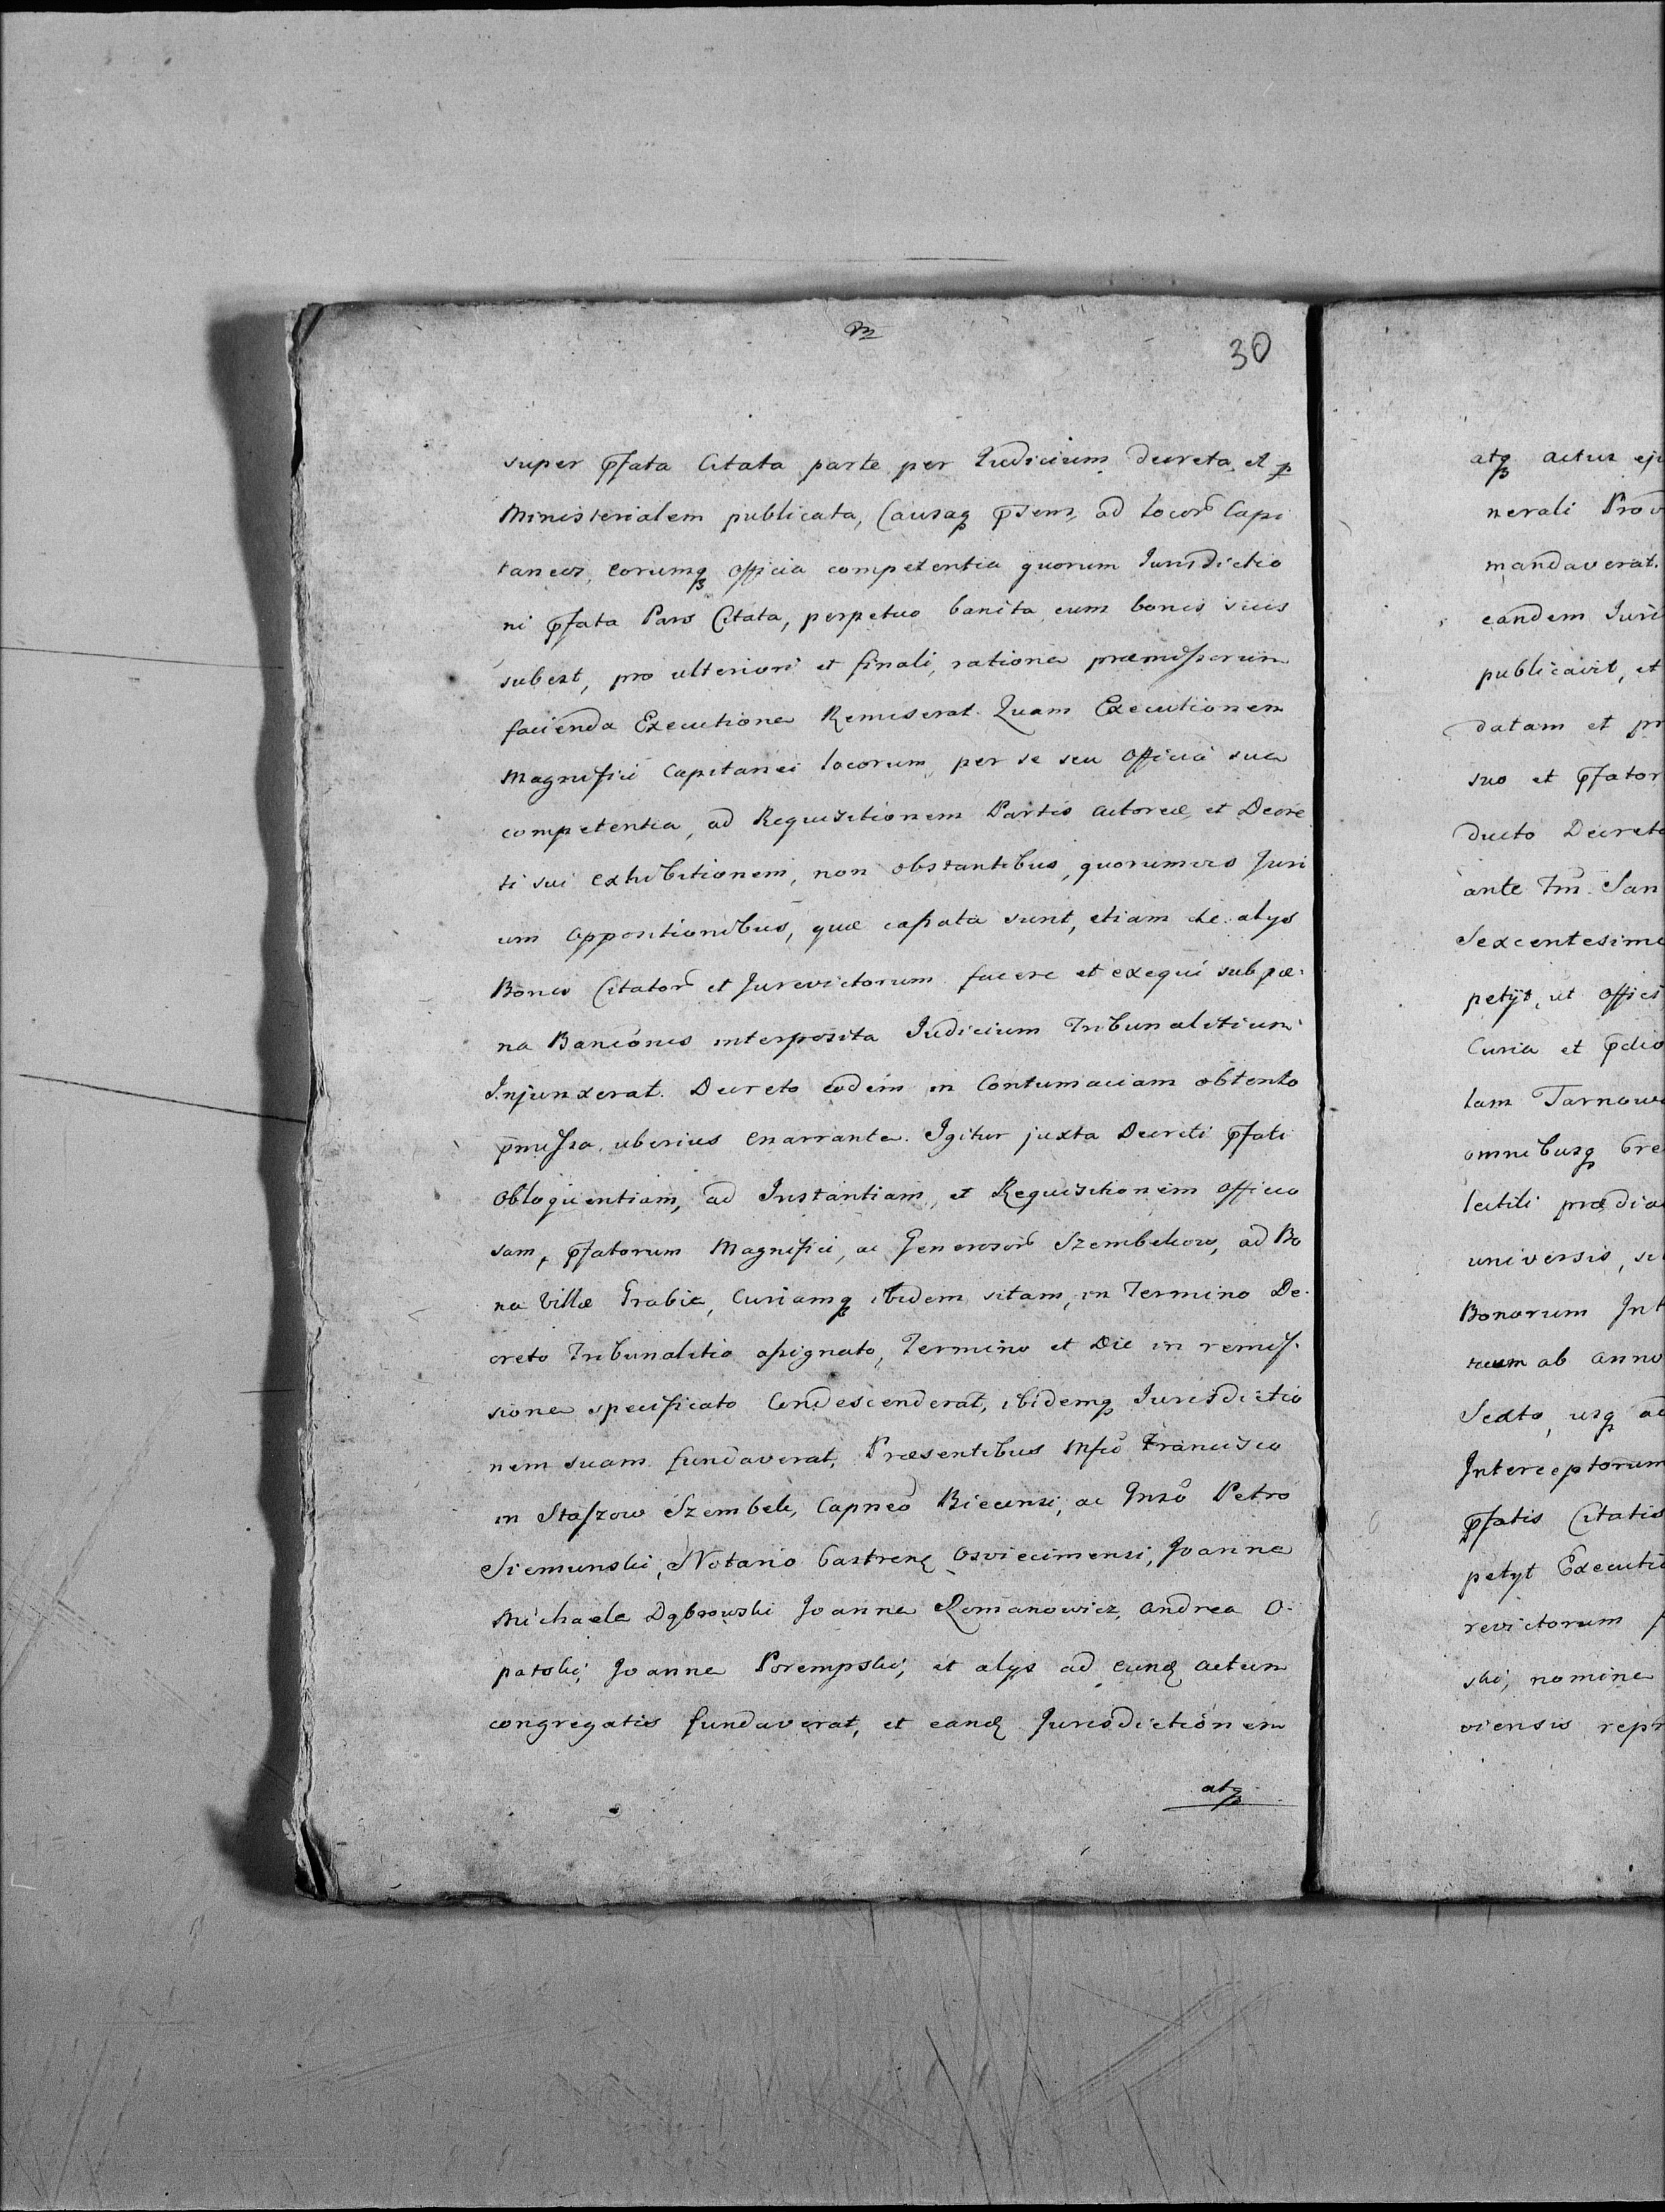 30
super pfata Citata parte per Iudicium decreta et p
Ministerialem publicata, Causaq psens, ad locor Capi
taneos, eorumq officia competentia quorum Iurisdictio
ni pfata Pars Citata, perpetuo banita cum bonis suis
subest, pro ulteriori et finali, ratione præmissorum
facienda Executione Remiserat. Quam Executionem
Magnifici Capitanei locorum, per se seu officia sua
competentia, ad Requisitionem Partis actoreæ, et Decre
ti sui exhibitionem, non obstantibus, quorumvis Juri
um oppositionibus, quæ cassata sunt, etiam de alys
Bonis Citator et Jurevictorum facere et exequi sub pæ
na Banionis interposita Iudicium Tribunalitium
Injunxerat. Decreto eodem in Contumaciam obtento
pmissa uberius enarrante. Igitur juxta Decreti pfati
obloquentiam, ad Instantiam, et Requisitionem officio
sam, pfatorum Magnifici, ac Generosor Szembekow, ad Bo
na Villæ Grabie, Curiamq ibidem sitam, in Termino De
creto Tribunalitio assignato, Termino et Die in remis
sione specificato Condescenderat, ibidemq Iurisdictio
nem suam fundaverat, Præsentibus Mfco Francisco
in Staszow Szembek, Capneo Biecensi, ac Gnso Petro
Siemunski, Notario Castren Osviecimensi, Joanne
Michaele Dąbrowski Joanne Romanowicz, Andrea O
patski, Joanne Porempski, et alys ad eund actum
congregatis fundaverat, et eand Jurisdictionem
atq
atq actus eju
nerali Prov
mandaverat.
eandem Juri
publicavit, et
datam et pr
suo et pfator
ducto Decreto
ante Fm San
Sexcentesimo
petyt, ut offici
Curia et pdio
lam Tarnow
omnibusq
lectili prædia
universis, se
Bonorum Int
ab anno
Sexto, usq ad
Interceptorum
pfatis Citatis
petyt Executi
revictorum
ski, nomine
viensis repr